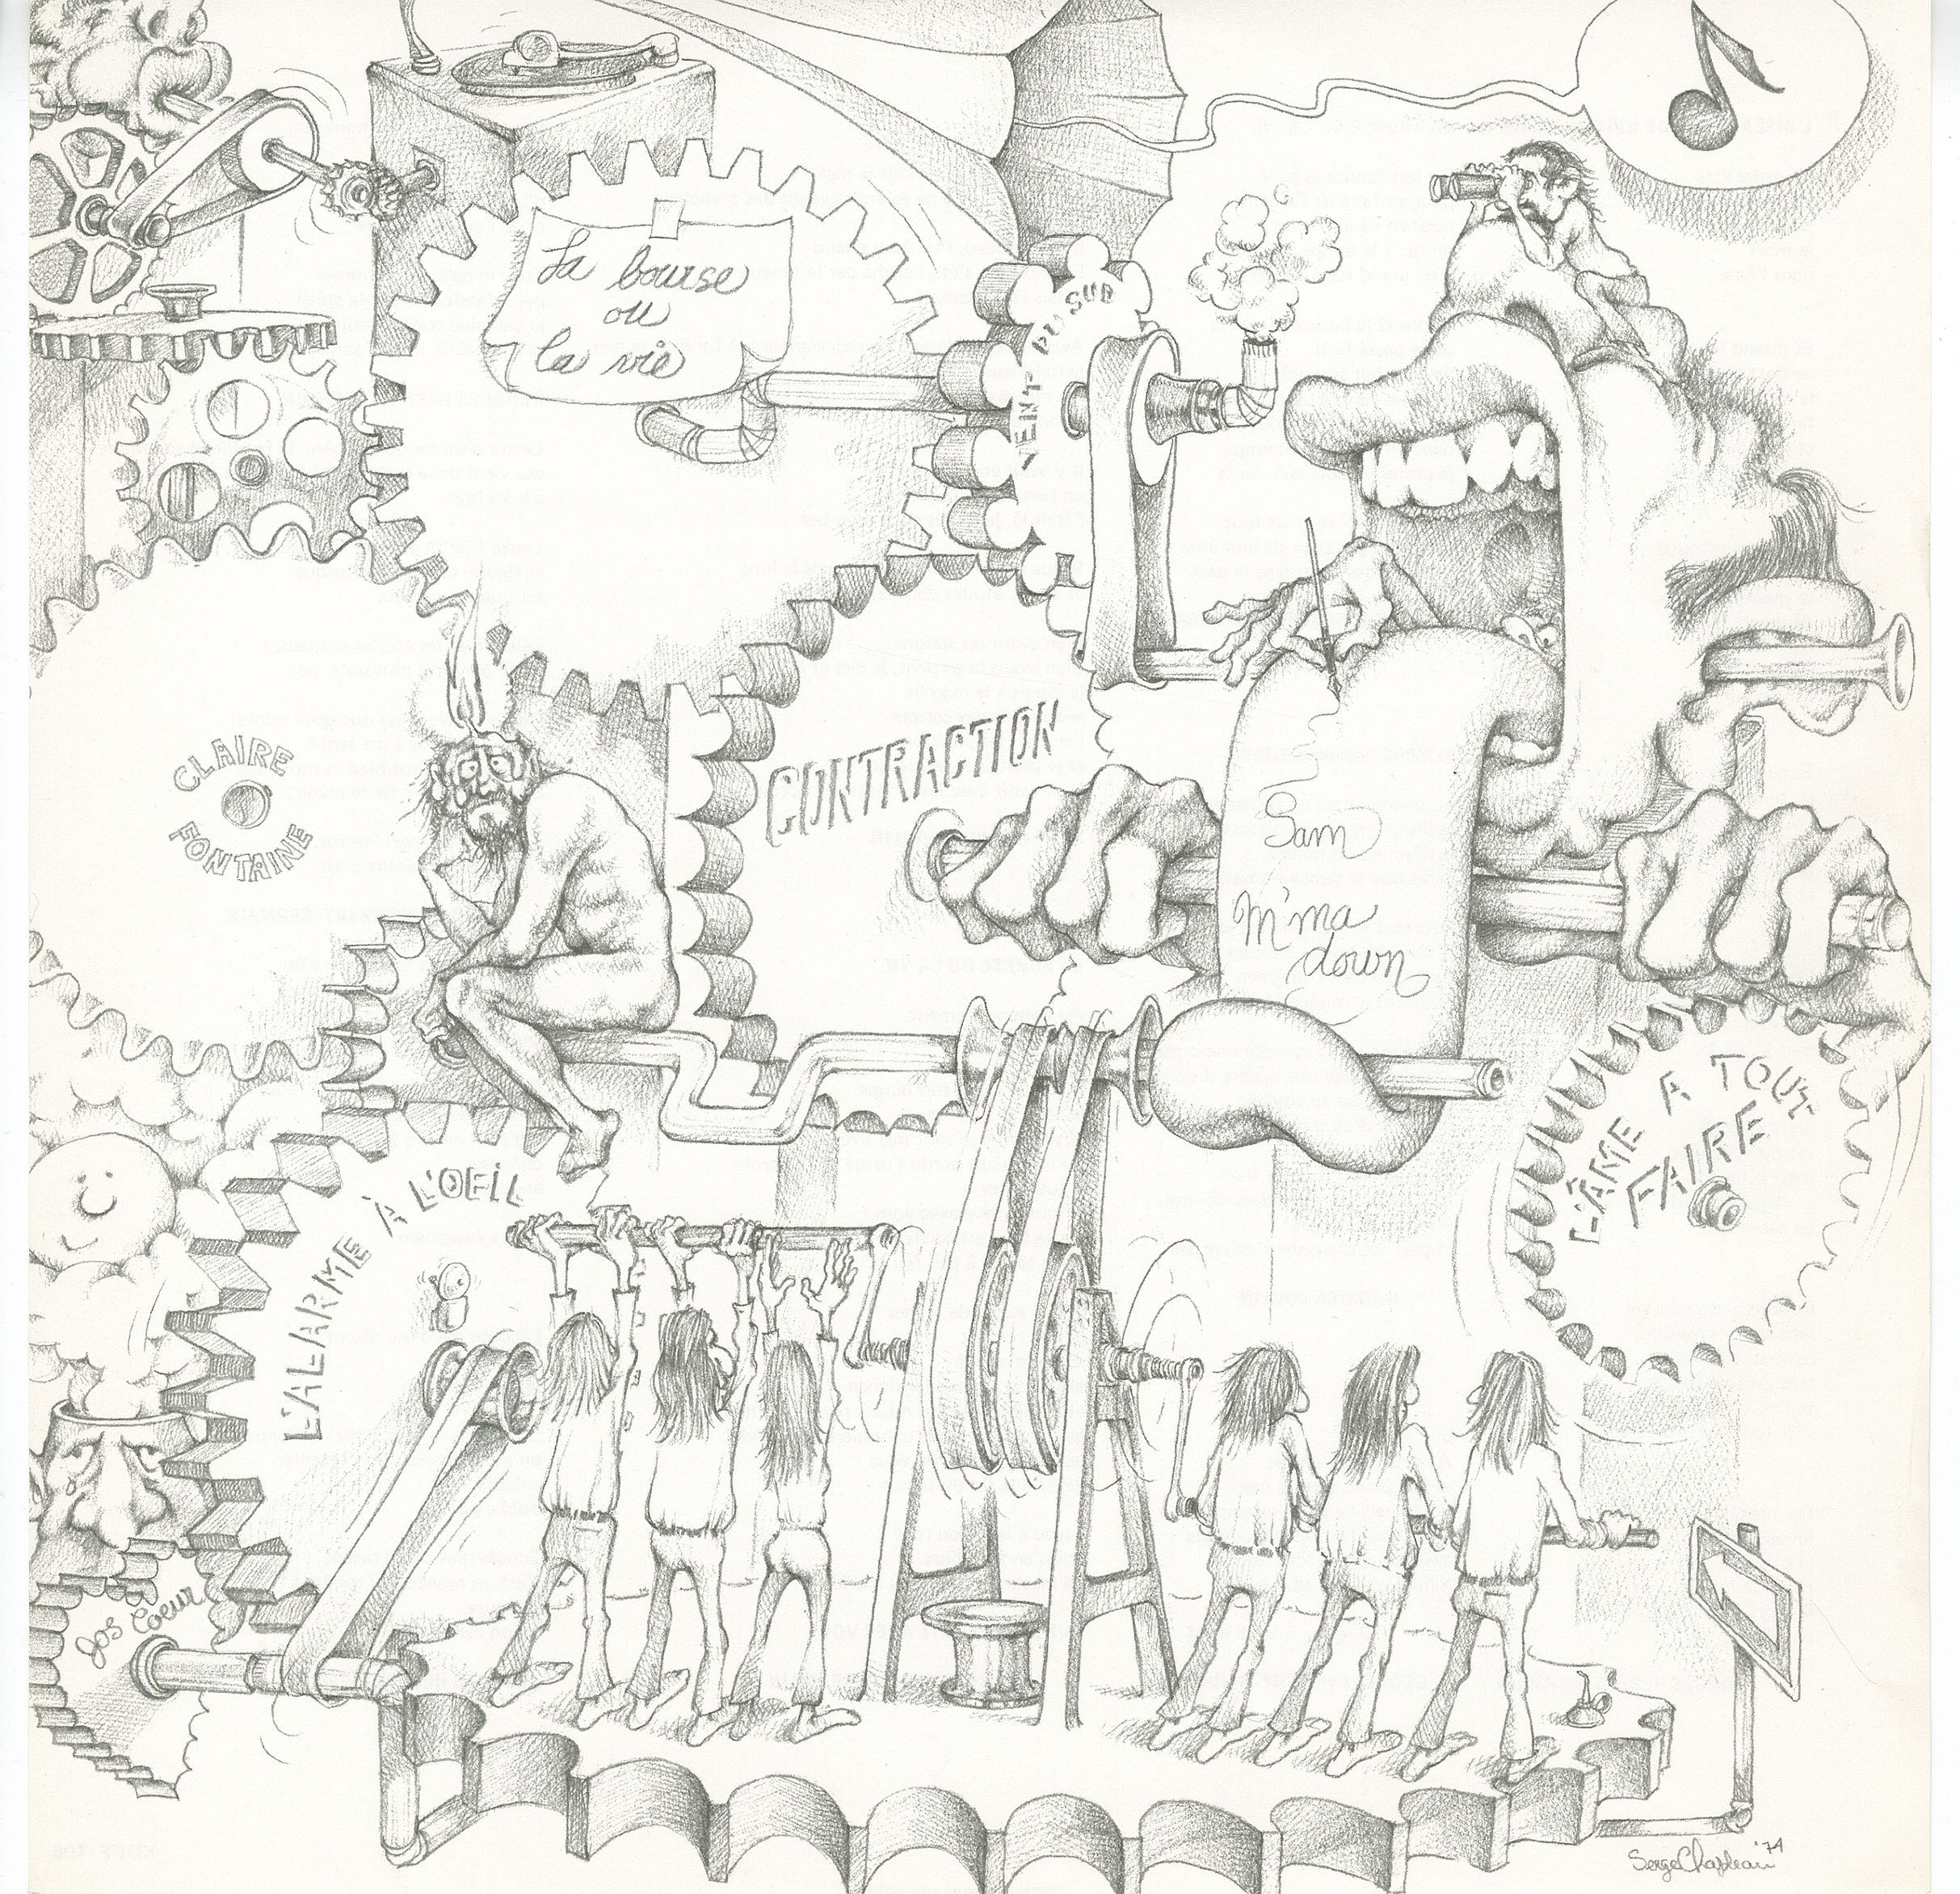 La bourse
ou
la vie
VENT DU SUD
CLAIRE
FONTAINE
CONTRACTION
Sam
M'ma
down
L'ÂME A TOUT
FAIRE
L'ALARME À L'OEIL
Jos Coeur
Serge Chapleau '74